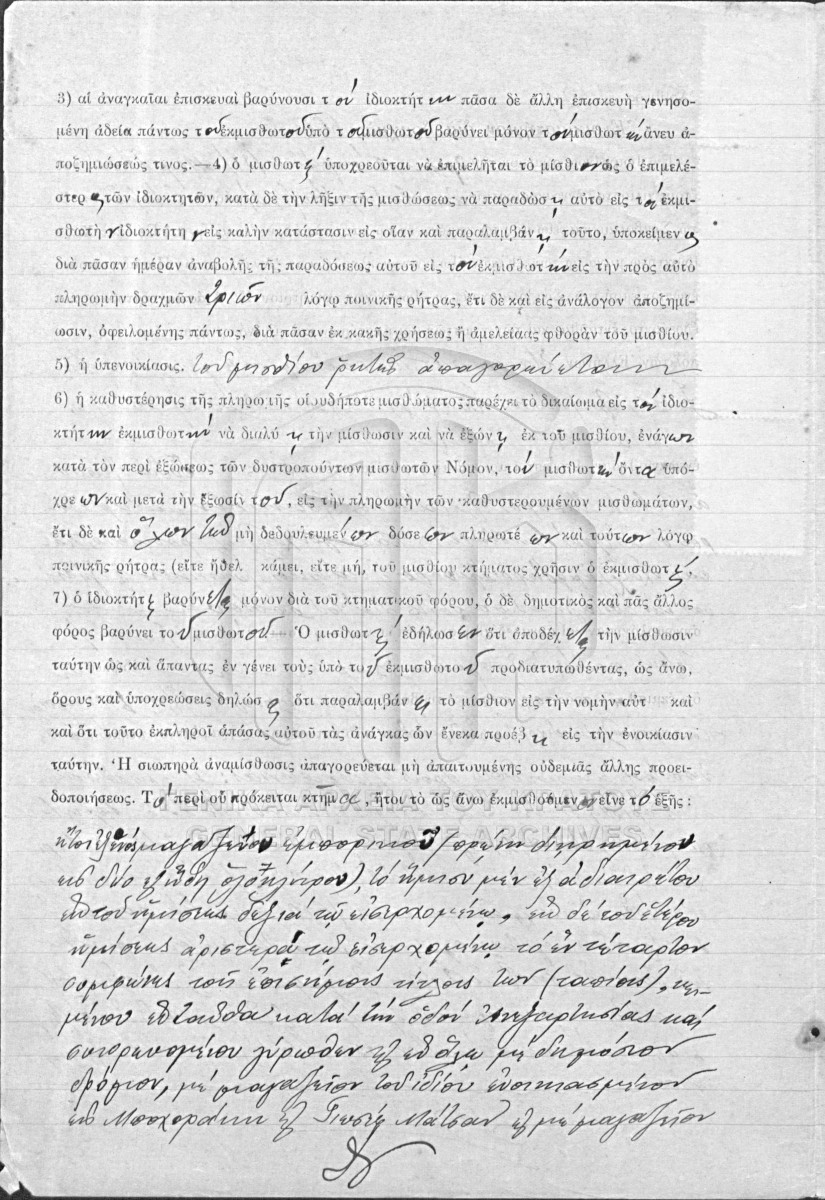 3) αἱ ἀναγκαῖαι ἐπισκευαὶ βαρύνουσι τὸν ἰδιοκτήτην πᾶσα δὲ ἄλλη ἐπισκευὴ γενησο-
μένη ἀδείᾳ πάντως τοῦ ἐκμισθωτοῦ ὑπὸ τοῦ μισθωτοῦ βαρύνει μόνον τὸν μισθωτὴν ἄνευ ἀ-
ποζημιώσεώς τινος.—4) ὁ μισθωτὴς ὑποχρεοῦται νὰ ἐπιμελῆται τὸ μίσθιον ὡς ὁ ἐπιμελέ-
στερος τῶν ἰδιοκτητῶν, κατὰ δὲ τὴν λῆξιν τῆς μισθώσεως νὰ παραδώσῃ αὐτὸ εἰς τὸν ἐκμι-
σθωτὴν ἰδιοκτήτην εἰς καλὴν κατάστασιν εἰς οἵαν καὶ παραλαμβάνει τοῦτο, ὑποκείμενος
διὰ πᾶσαν ἡμέραν ἀναβολῆς τῆς παραδόσεως αὐτοῦ εἰς τὸν ἐκμισθωτὴν εἰς τὴν πρὸς αὐτὸ
πληρωμὴν δραχμῶν τριῶν λόγῳ ποινικῆς ρήτρας, ἔτι δὲ καὶ εἰς ἀνάλογον ἀποζημί-
ωσιν, ὀφειλομένης πάντως, διὰ πᾶσαν ἐκ κακῆς χρήσεως ἢ ἀμελείαας φθορὰν τοῦ μισθίου.
5) ἡ ὑπενοικίασις. τοῦ μισθίου ρητῶς ἀπαγορεύεται
6) ἡ καθυστέρησις τῆς πληρωμῆς οἱουδήποτε μισθώματος παρέχει τὸ δικαίωμα εἰς τὸν ἰδιο-
κτήτην ἐκμισθωτὴν νὰ διαλύῃ τὴν μίσθωσιν καὶ νὰ ἐξώνῃ ἐκ τοῦ μισθίου, ἐνάγων
κατὰ τὸν περὶ ἐξώσεως τῶν δυστροπούντων μισθωτῶν Νόμον, τὸν μισθωτὴν ὄντα ὑπό-
χρεων καὶ μετὰ τὴν ἔξωσίν του, εἰς τὴν πληρωμὴν τῶν καθυστερουμένων μισθωμάτων,
ἔτι δὲ καὶ ὅλων τῶν μὴ δεδουλευμένων δόσεων πληρωτέων καὶ τούτων λόγῳ
ποινικῆς ρήτρας (εἴτε ἤθελ κάμει, εἴτε μή, τοῦ μισθίου κτήματος χρῆσιν ὁ ἐκμισθωτής,
7) ὁ ἰδιοκτήτης βαρύνεται μόνον διὰ τοῦ κτηματικοῦ φόρου, ὁ δὲ δημοτικὸς καὶ πᾶς ἄλλος
φόρος βαρύνει τοῦ μισθωτοῦ— Ὁ μισθωτὴς ἐδήλωσεν ὅτι ἀποδέχεται τὴν μίσθωσιν
ταύτην ὡς καὶ ἅπαντας ἐν γένει τοὺς ὑπὸ τοῦ ἐκμισθωτοῦ προδιατυπωθέντας, ὡς ἄνω,
ὅρους καὶ ὑποχρεώσεις δηλώσας ὅτι παραλαμβάνει τὸ μίσθιον εἰς τὴν νομὴν αὐτ καὶ
καὶ ὅτι τοῦτο ἐκπληροῖ ἁπάσας αὐτοῦ τὰς ἀνάγκας ὧν ἕνεκα προέβη εἰς τὴν ἐνοικίασιν
ταύτην. Ἡ σιωπηρὰ ἀναμίσθωσις ἀπαγορεύεται μὴ ἀπαιτουμένης οὐδεμιᾶς ἄλλης προει-
δοποιήσεως. Τὸ περὶ οὗ πρόκειται κτῆμα, ἤτοι τὸ ὡς ἄνω ἐκμισθούμενον εἶνε τὸ ἑξῆς:
ΓΕΝΙΚΑ ΑΡΧΕΙΑ ΤΟΥ ΚΡΑΤΟΥΣ
GENERAL STATE ARCHIVES
μαγαζείου ἐμπορικοῦ (πρώην διῃρημένου
εἰς δύο ὁλοκλήρου), τὸ ἥμισυ μὲν ἐξ ἀδιαιρέτου
ἐπὶ τοῦ ἡμίσεως δεξιὰ τῷ εἰσερχομένῳ, ἐπὶ δὲ τοῦ ἑτέρου
ἡμίσεως ἀριστερὰ τῷ εἰσερχομένῳ τὸ ἓν τέταρτον
συμφώνως τοῖς ἐπισήμοις τίτλοις των (ταπίοις), κει-
μένου ἐνταῦθα κατὰ τὴν ὁδὸν Ἀνεξαρτησίας καὶ
συνορευομένου γύρωθεν μὲ δημόσιον
δρόμον, μὲ μαγαζεῖον τοῦ ἰδίου
Μάτσαν μὲ μαγαζεῖον